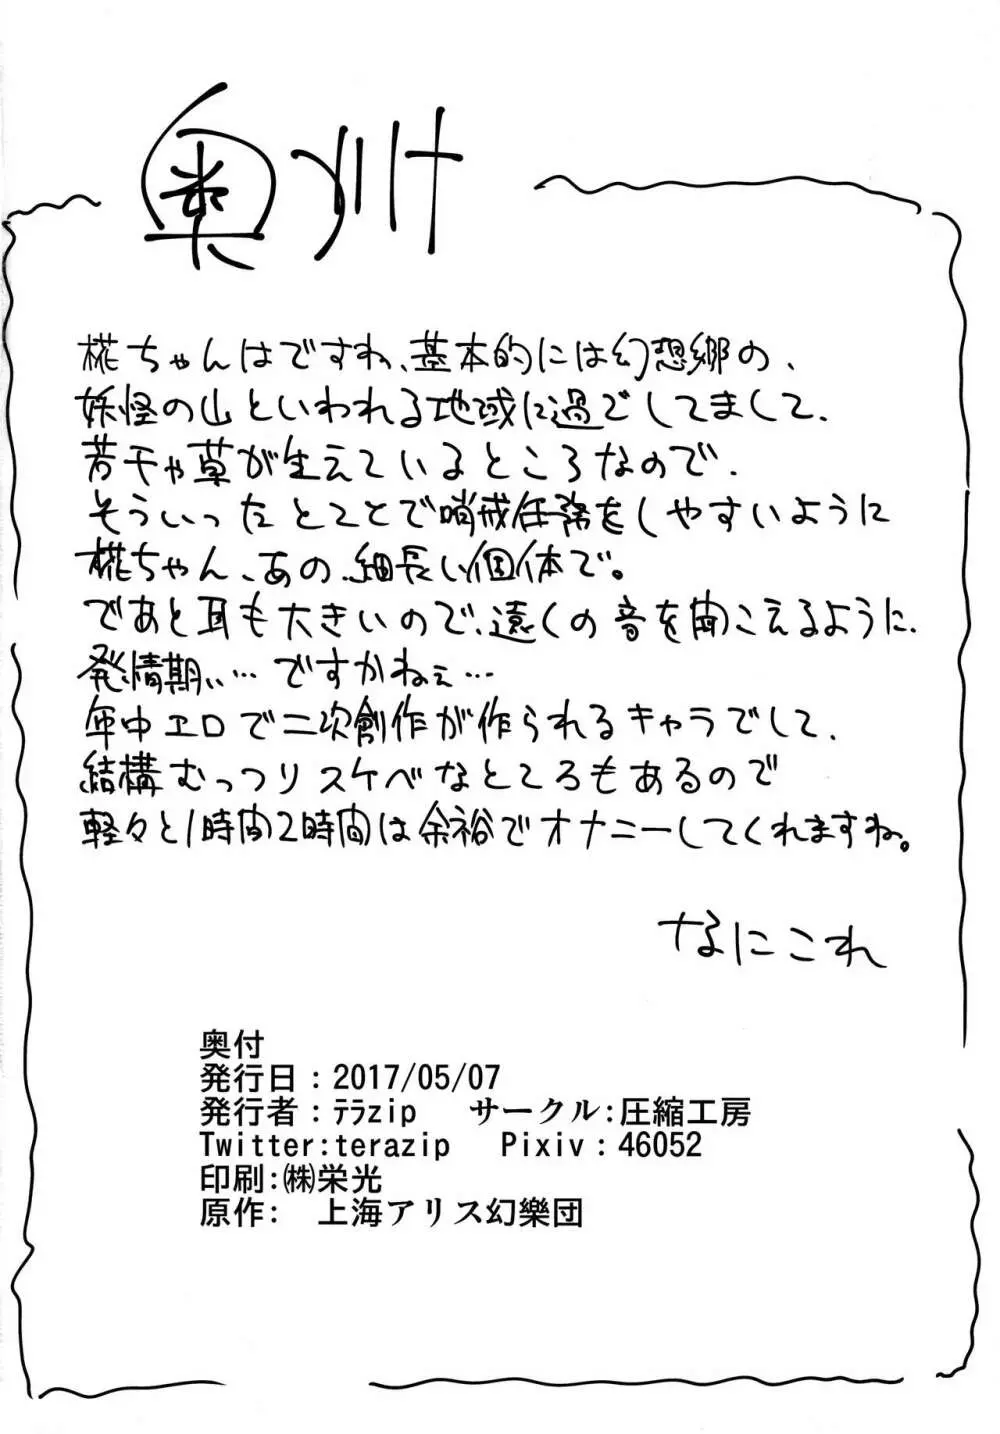 奥付
椛ちゃんはですね、基本的には幻想郷の、
妖怪の山といわれる地域に過ごしてまして、
若干や草が生えているところなので、
そういったとことで哨戒任務をしやすいように
椛ちゃん、あの、細長い個体で。
であと耳も大きいので、遠くの音を聞こえるように、
発情期ぃ…ですかねぇ…
年中エロで二次創作が作られるキャラでして、
結構むっつりスケベなところもあるので
軽々と1時間2時間は余裕でオナニーしてくれますね。
なにこれ
奥付
発行日：2017/05/07
発行者：ﾃﾗzip　サークル:圧縮工房
Twitter:terazip　Pixiv：46052
印刷:㈱栄光
原作:　上海アリス幻樂団